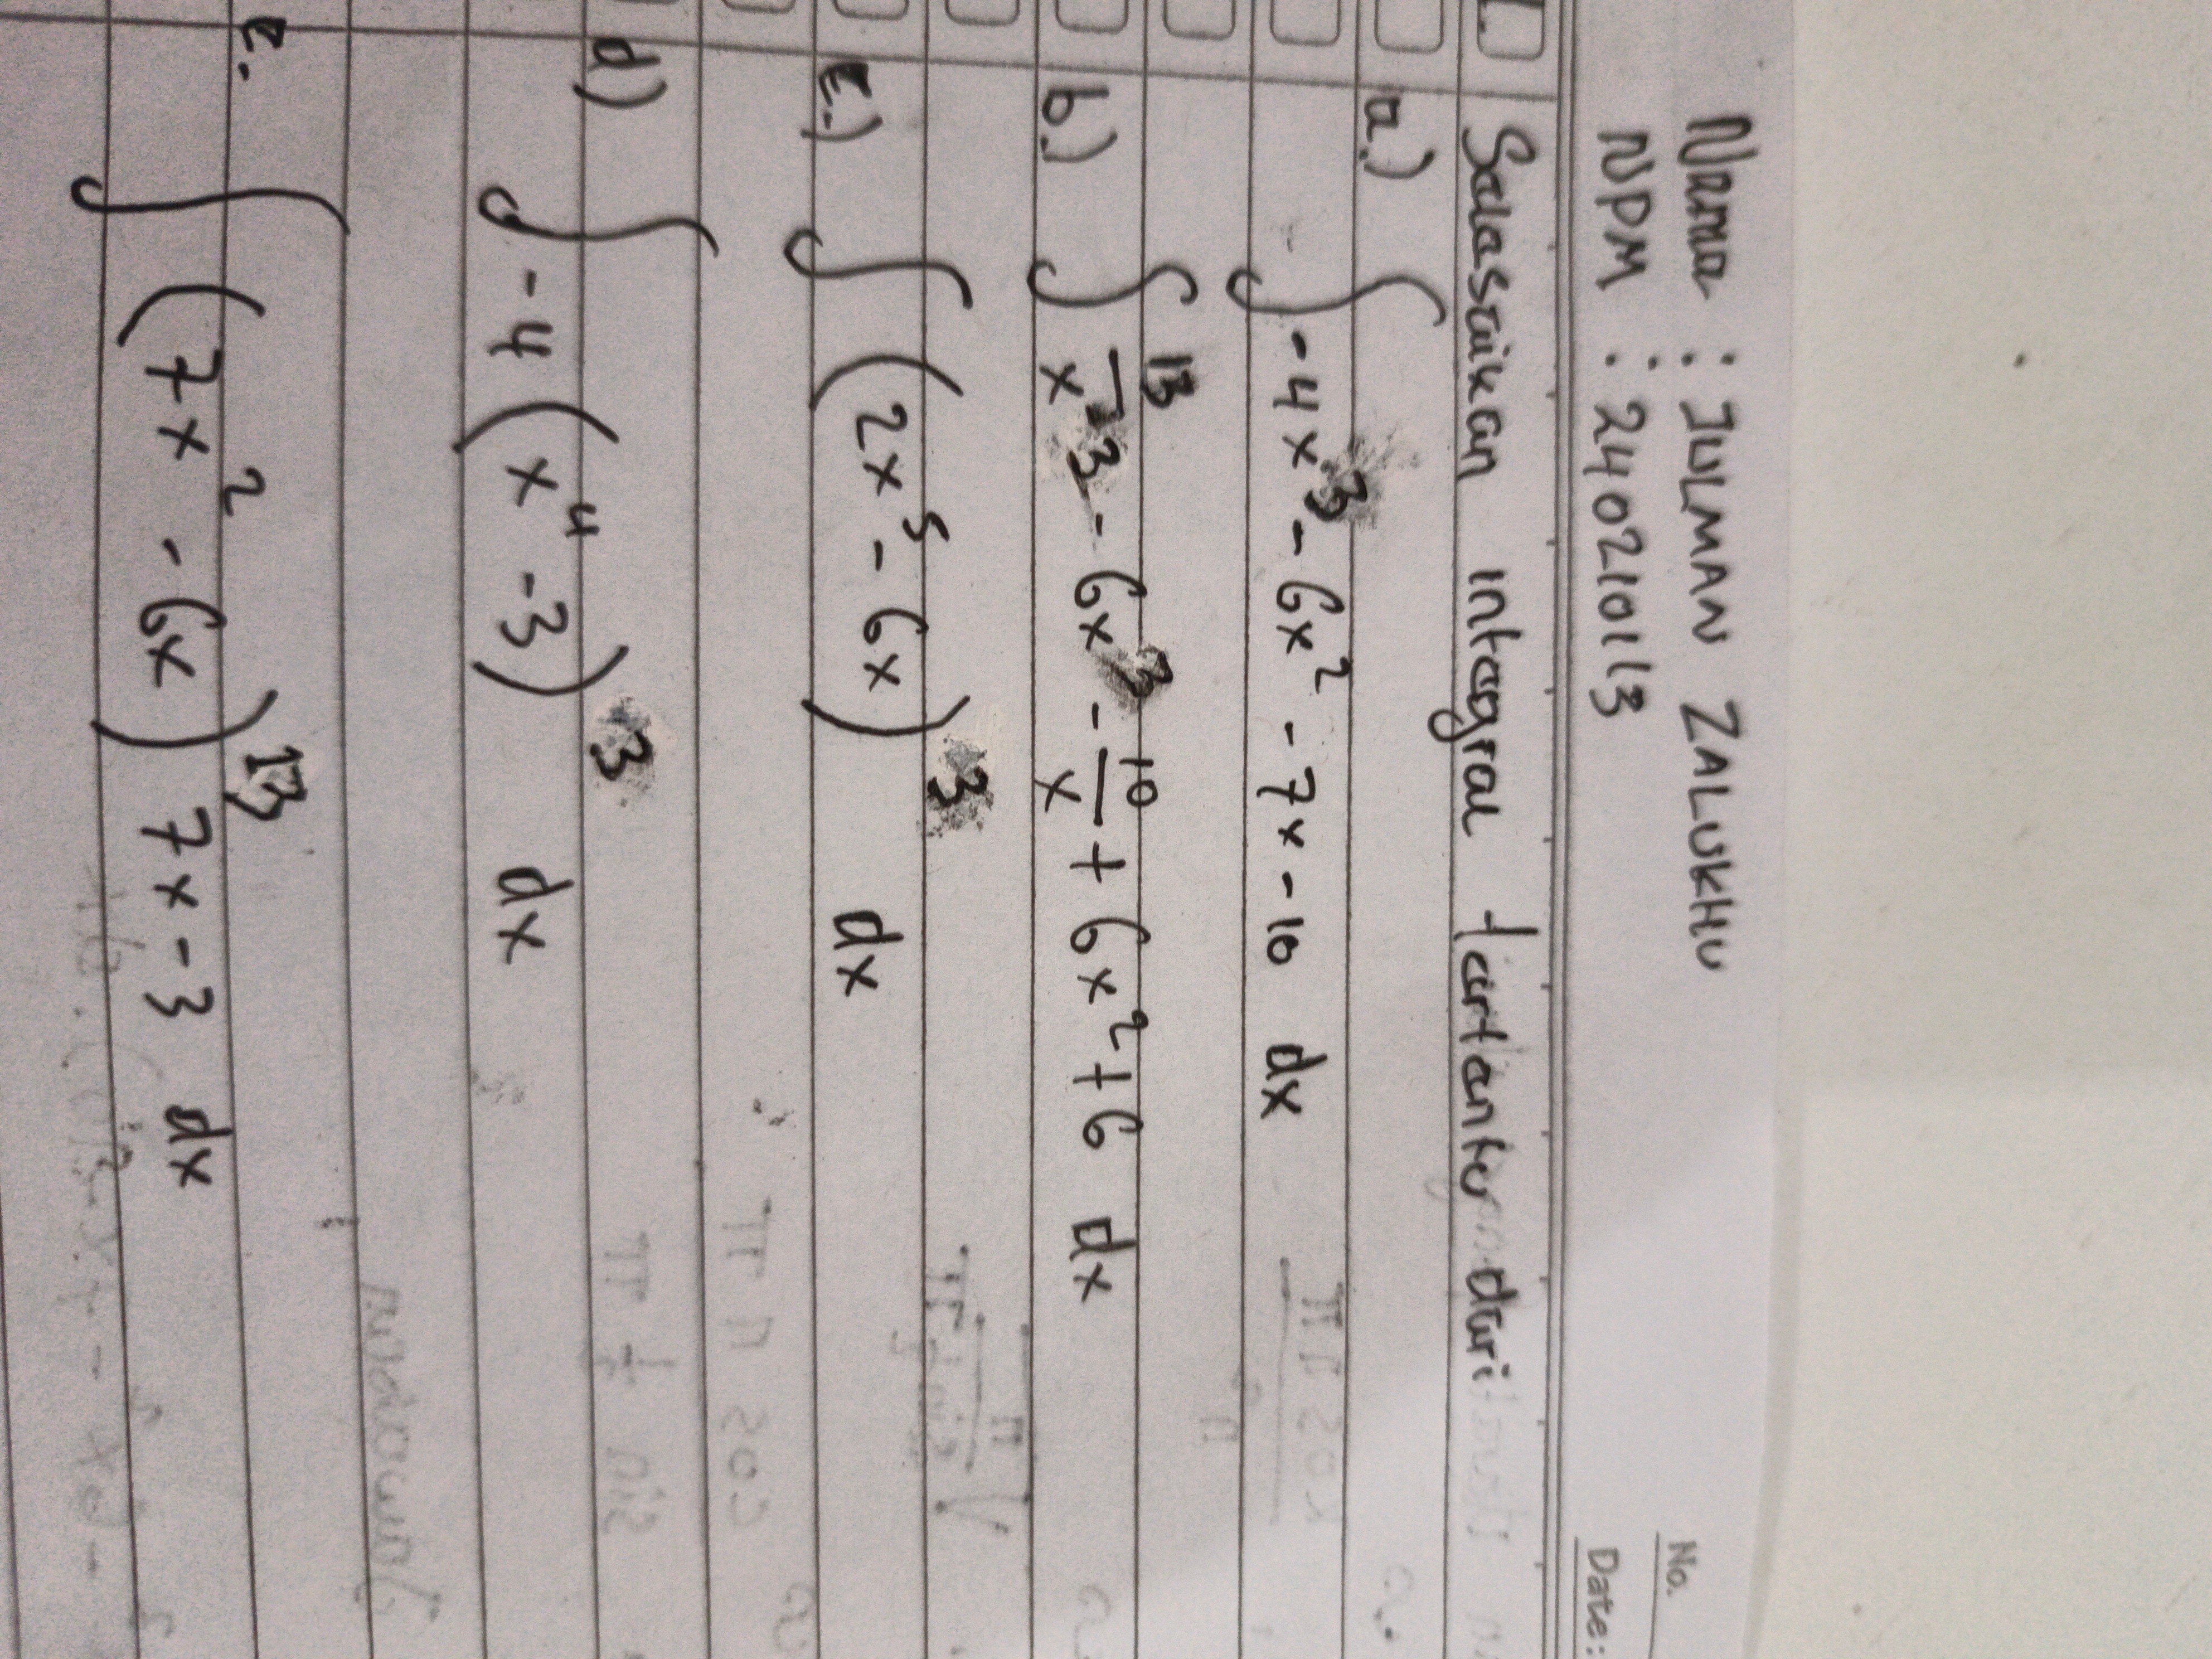 No.
Date:
Nama : JULMAN ZALUKHU
NPM : 240210113
1. Selesaikan integral tertentu dari
a.) ∫ -4x³ - 6x² - 7x - 10 dx
b.) ∫ 13/x³ - 6x³ - 10/x + 6x² + 6 dx
c.) ∫ (2x⁵ - 6x)³ dx
d) ∫ -4 (x⁴ - 3)³ dx
e. ∫ (7x² - 6x)¹³ 7x - 3 dx